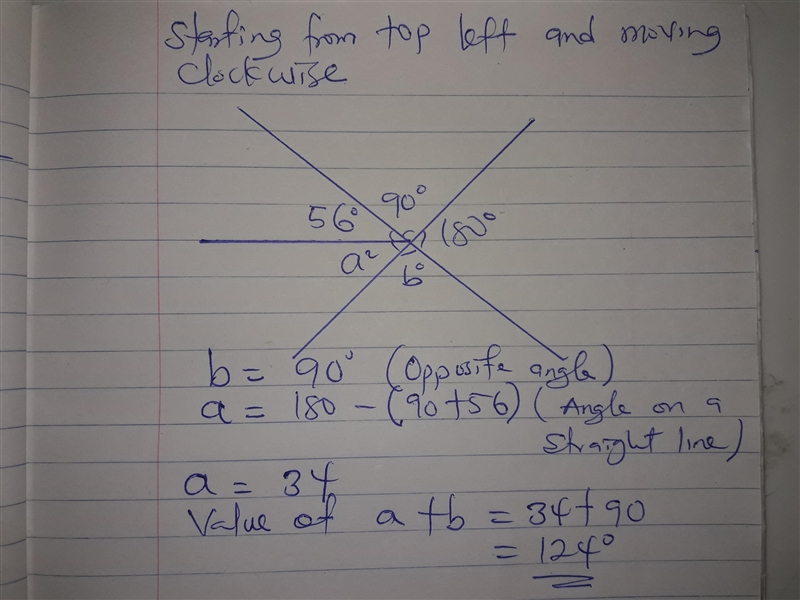 Starting from top left and moving
Clockwise
90°
56°
180°
a°
b°
b = 90° (Opposite angle)
a = 180 - (90+56) (Angle on a
straight line)
a = 34
Value of a + b = 34 + 90
= 124°